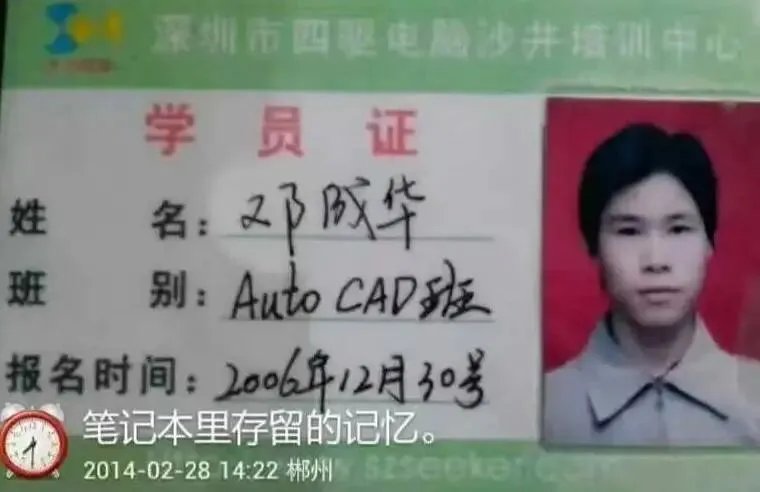 深圳市四驱电脑沙井培训中心
学员证
姓名：邓成华
班别：Auto CAD班
报名时间：2006年12月30号
笔记本里存留的记忆。
2014-02-28 14:22 郴州